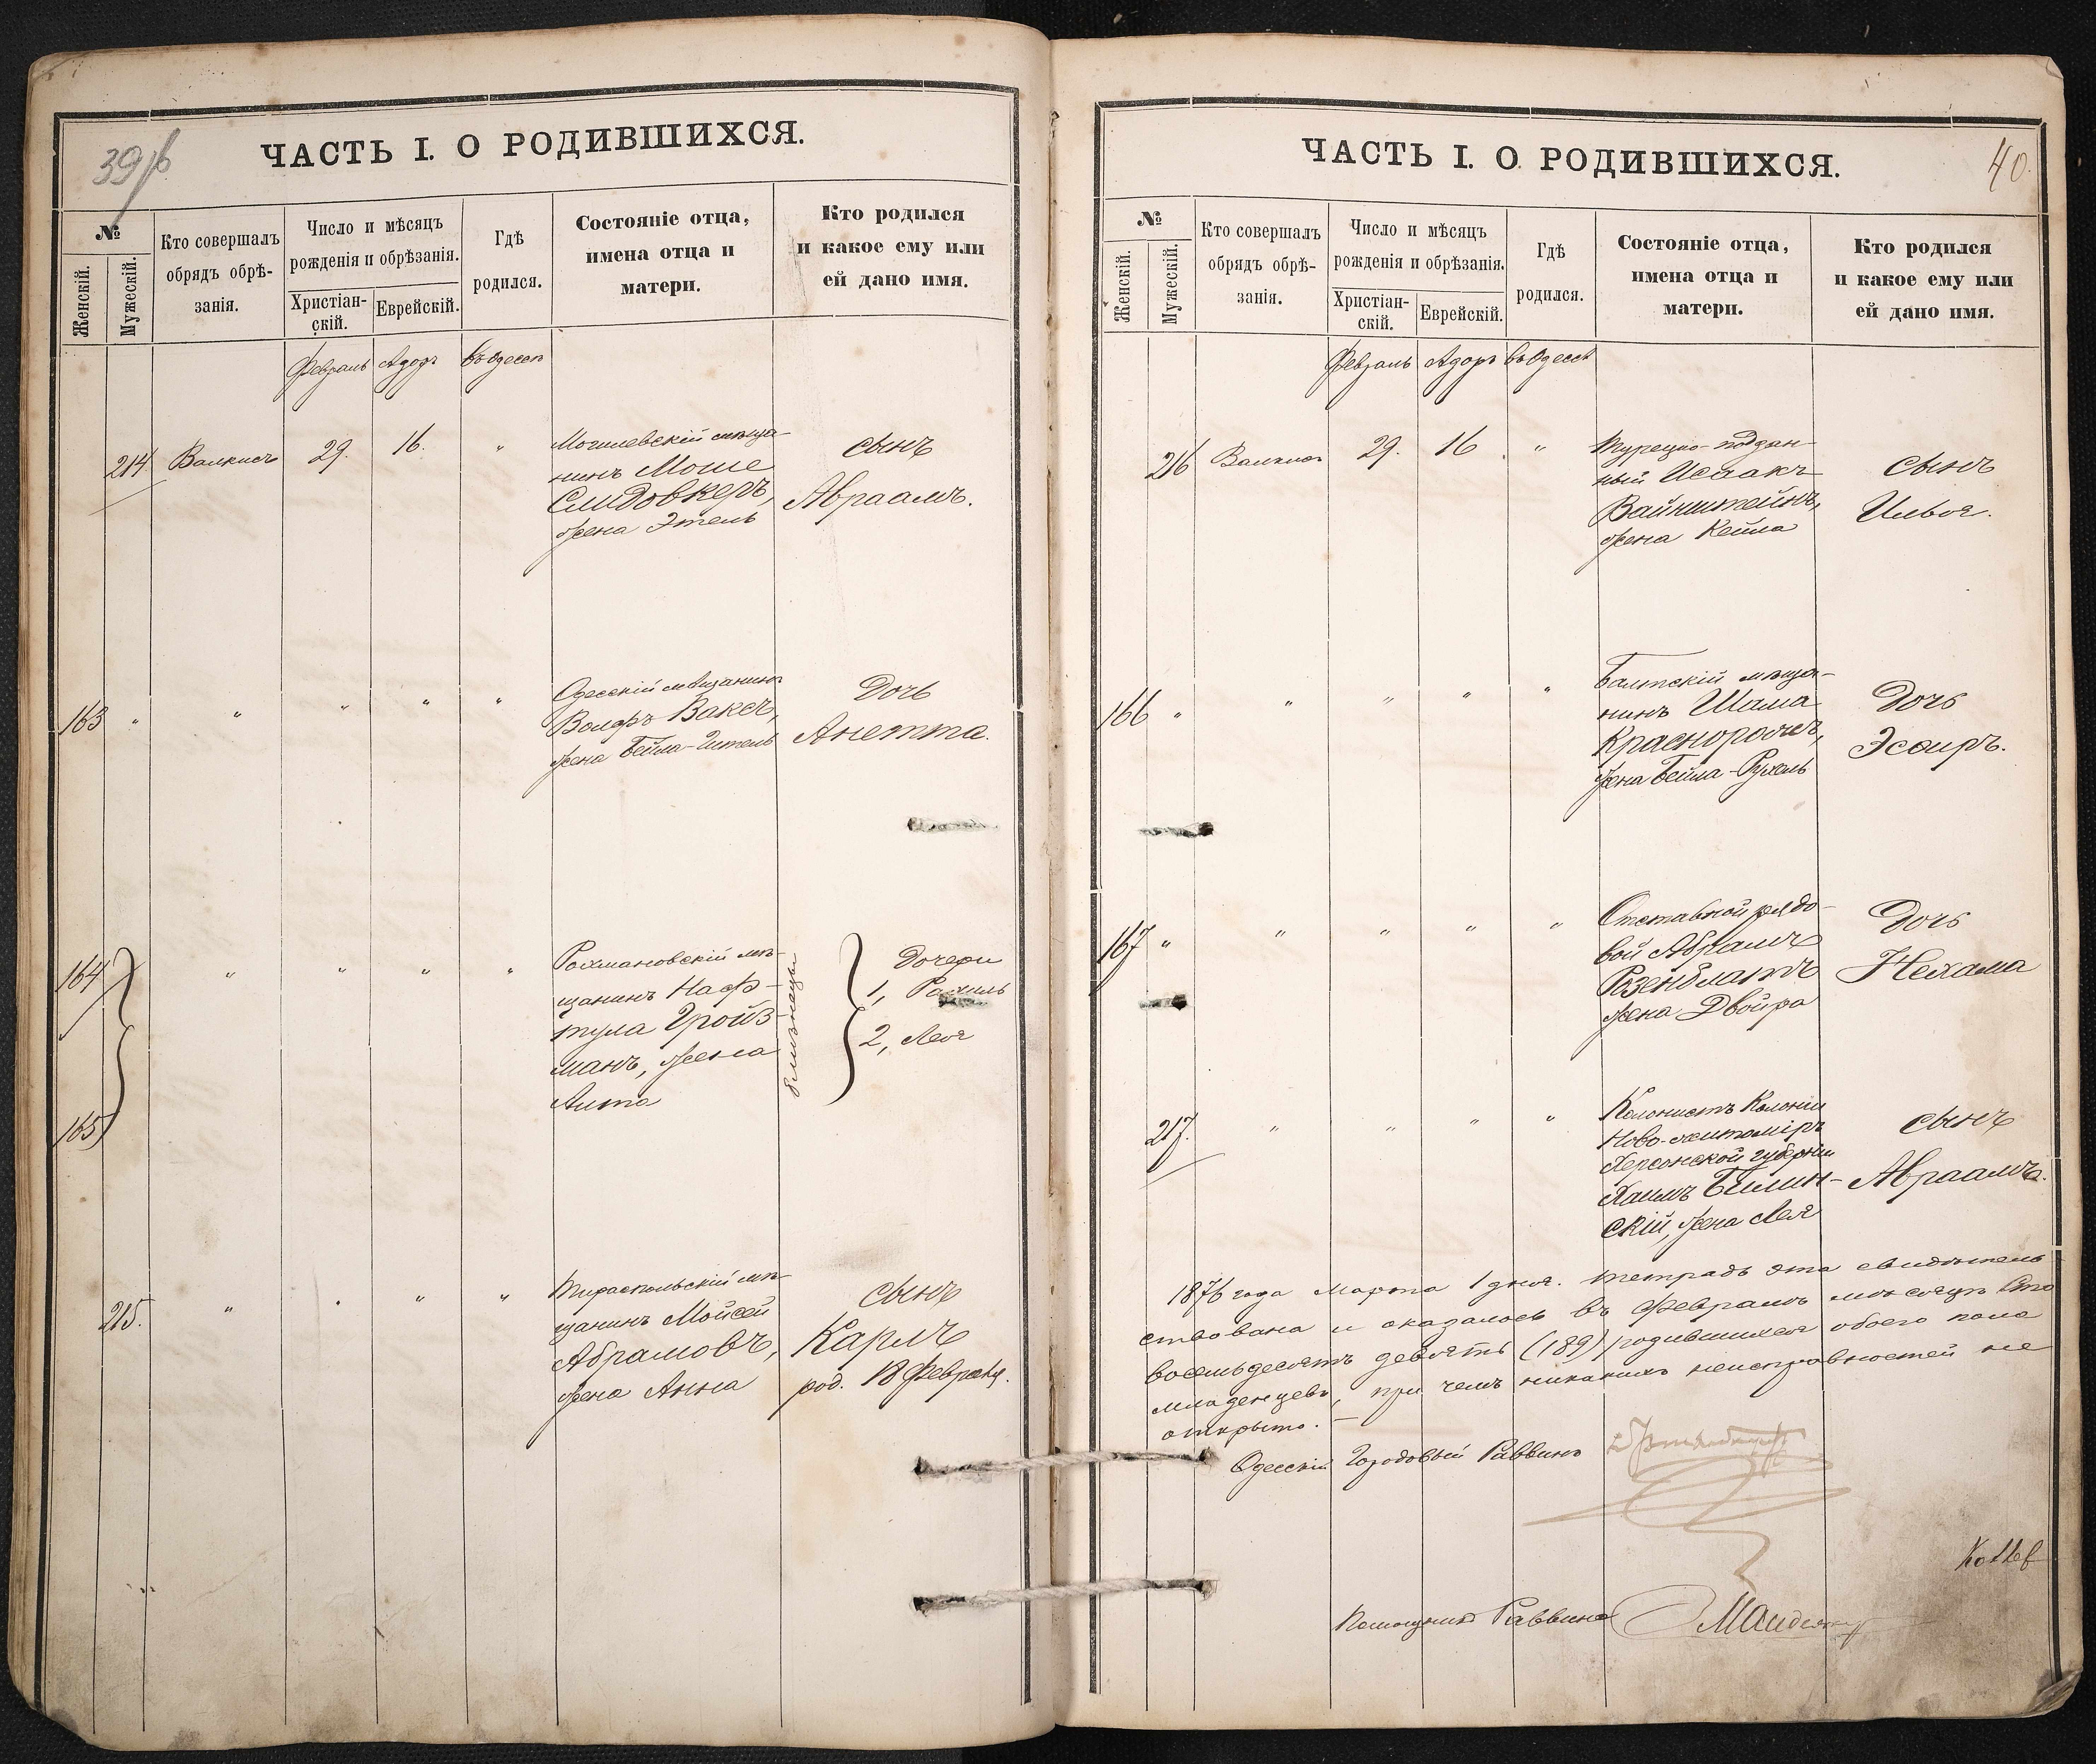 39
ЧАСТЬ I. О РОДИВШИХСЯ.
№
Женскій.
Мужескій.
Кто совершалъ
обрядъ обрѣ-
занія.
Число и мѣсяцъ
рожденія и обрѣзанія.
Христіан-
скій.
Еврейскій.
Гдѣ
родился.
Состояніе отца,
имена отца и
матери.
Кто родился
и какое ему или
ей дано имя.
Февраль Адоръ въ Одессѣ
214 29. 16. "
Могилевскій мѣща-
нинъ Моше
Слидовкеръ,
жена Этель
сынъ
Авраамъ.
163 " " " " "
Одесскій мѣщанинъ
Волфъ Ваксъ,
жена Бейла-Гитель
Дочь
Анетта.
164
165
" " " "
Рахмановскій мѣ-
щанинъ Наф-
тула Гройз-
манъ, жена
Анта
близнецы
Дочери
1, Рахиль
2, Лея
215. " " " "
Тираспольскій мѣ-
щанинъ Мойсей
Абрамовъ,
жена Анна
сынъ
Карлъ
род. 18 Февраля.
ЧАСТЬ I. О РОДИВШИХСЯ.
40.
№
Женскій.
Мужескій.
Кто совершалъ
обрядъ обрѣ-
занія.
Число и мѣсяцъ
рожденія и обрѣзанія.
Христіан-
скій.
Еврейскій.
Гдѣ
родился.
Состояніе отца,
имена отца и
матери.
Кто родился
и какое ему или
ей дано имя.
Февраль Адоръ въ Одессѣ
216 29. 16 "
Турецко-поддан-
ный Исаакъ
Вайнштейнъ,
жена Кейла
сынъ
Илья.
166 " " " " "
Балтскій мѣща-
нинъ Шама
жена Бейла-Рухель
Дочь
Эсѳиръ.
167 " " " " "
Отставной рядо-
вой Абрамъ
Розенблатъ
жена Двойра
Дочь
Нехама
217. " " " "
Колонистъ Колоніи
Ново-житоміръ
Херсонской губерніи
Хаимъ Билин-
скій, жена Лея
сынъ
Авраамъ.
1876 года Марта 1 дня. Тетрадь эта свидѣтель
ствована и оказалось въ Февралѣ мѣсяцѣ Сто
восемьдесятъ девять (189) родившихся обоего пола
младенцевъ, при чемъ никакихъ неисправностей не
открыто. —
Одесскій Городовый Раввинъ
Помощникъ Раввина